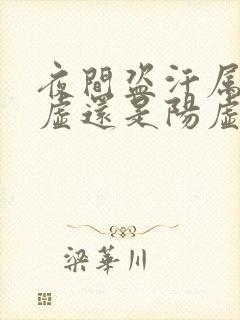 夜間盗汗属
虛還是陽虛
梁華川